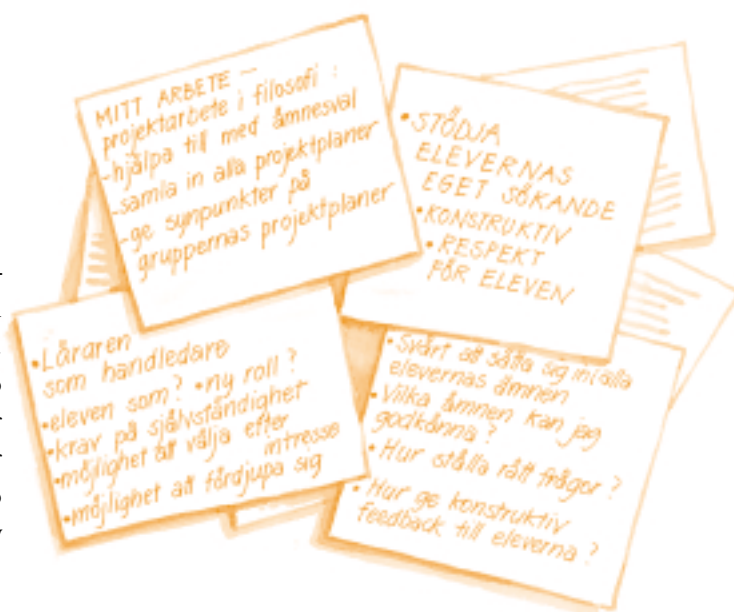 MITT ARBETE –
projektarbete i filosofi :
-hjälpa till med ämnesval
-samla in alla projektplaner
-ge synpunkter på
gruppernas projektplaner
•STÖDJA
ELEVERNAS
EGET SÖKANDE
•KONSTRUKTIV
•RESPEKT
FÖR ELEVEN
•Läraren
som handledare
•eleven som? •ny roll ?
•krav på självständighet
•möjlighet att välja efter
intresse
•möjlighet att fördjupa sig
•Svårt att sätta sig in i alla
elevernas ämnen
•Vilka ämnen kan jag
godkänna ?
•Hur ställa rätt frågor ?
•Hur ge konstruktiv
feedback till eleverna ?